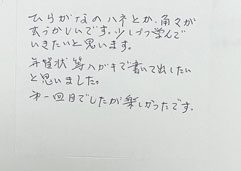 ひらがなのハネとか、角々が
むづかしいです。少しづつ学んで
いきたいと思います。
年賀状 等ハガキで書いて出したい
と思いました。
第一回目でしたが楽しかったです。